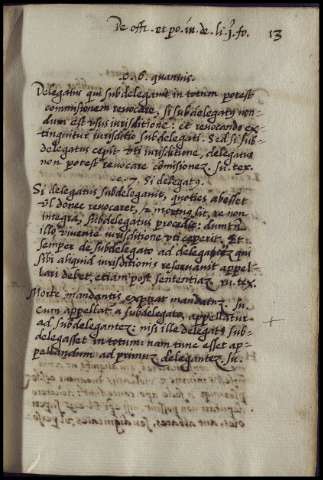 De offi. et po. iu. de. li. j. fo. 13
c. 6. quamuis.
Delegatus qui subdelegauit in totum potest
commisionem reuocare, si subdelegatus non-
dum est usus iurisditione: et reuocando ex-
tinguitur iurisditio subdelegati. Sed si sub-
delegatus cepit uti iurisditione, delegatus
non potest reuocare comisionez. su. tex.
c. 7. Si delegatus.
Si delegatus subdelegauit, quoties abesset
ul donec reuocaret, & mortuus sit, re non
integra, subdelegatus procedit: dummodo
illo uiuente iurisditione uti ceperit. Et
semper de subdelegato ad delegantez qui
sibi aliquid iurisditionis reseruauit appel-
lari debet, etiam post sententiaz. su. tex.
Morte mandantis expirat mandatuz. su.
cum appellat a subdelegato, appellatur
ad subdelegantez: nisi ille delegatus sub-
delegasset in totum nam tunc esset ap-
pellandum ad primuz delegantez. su.